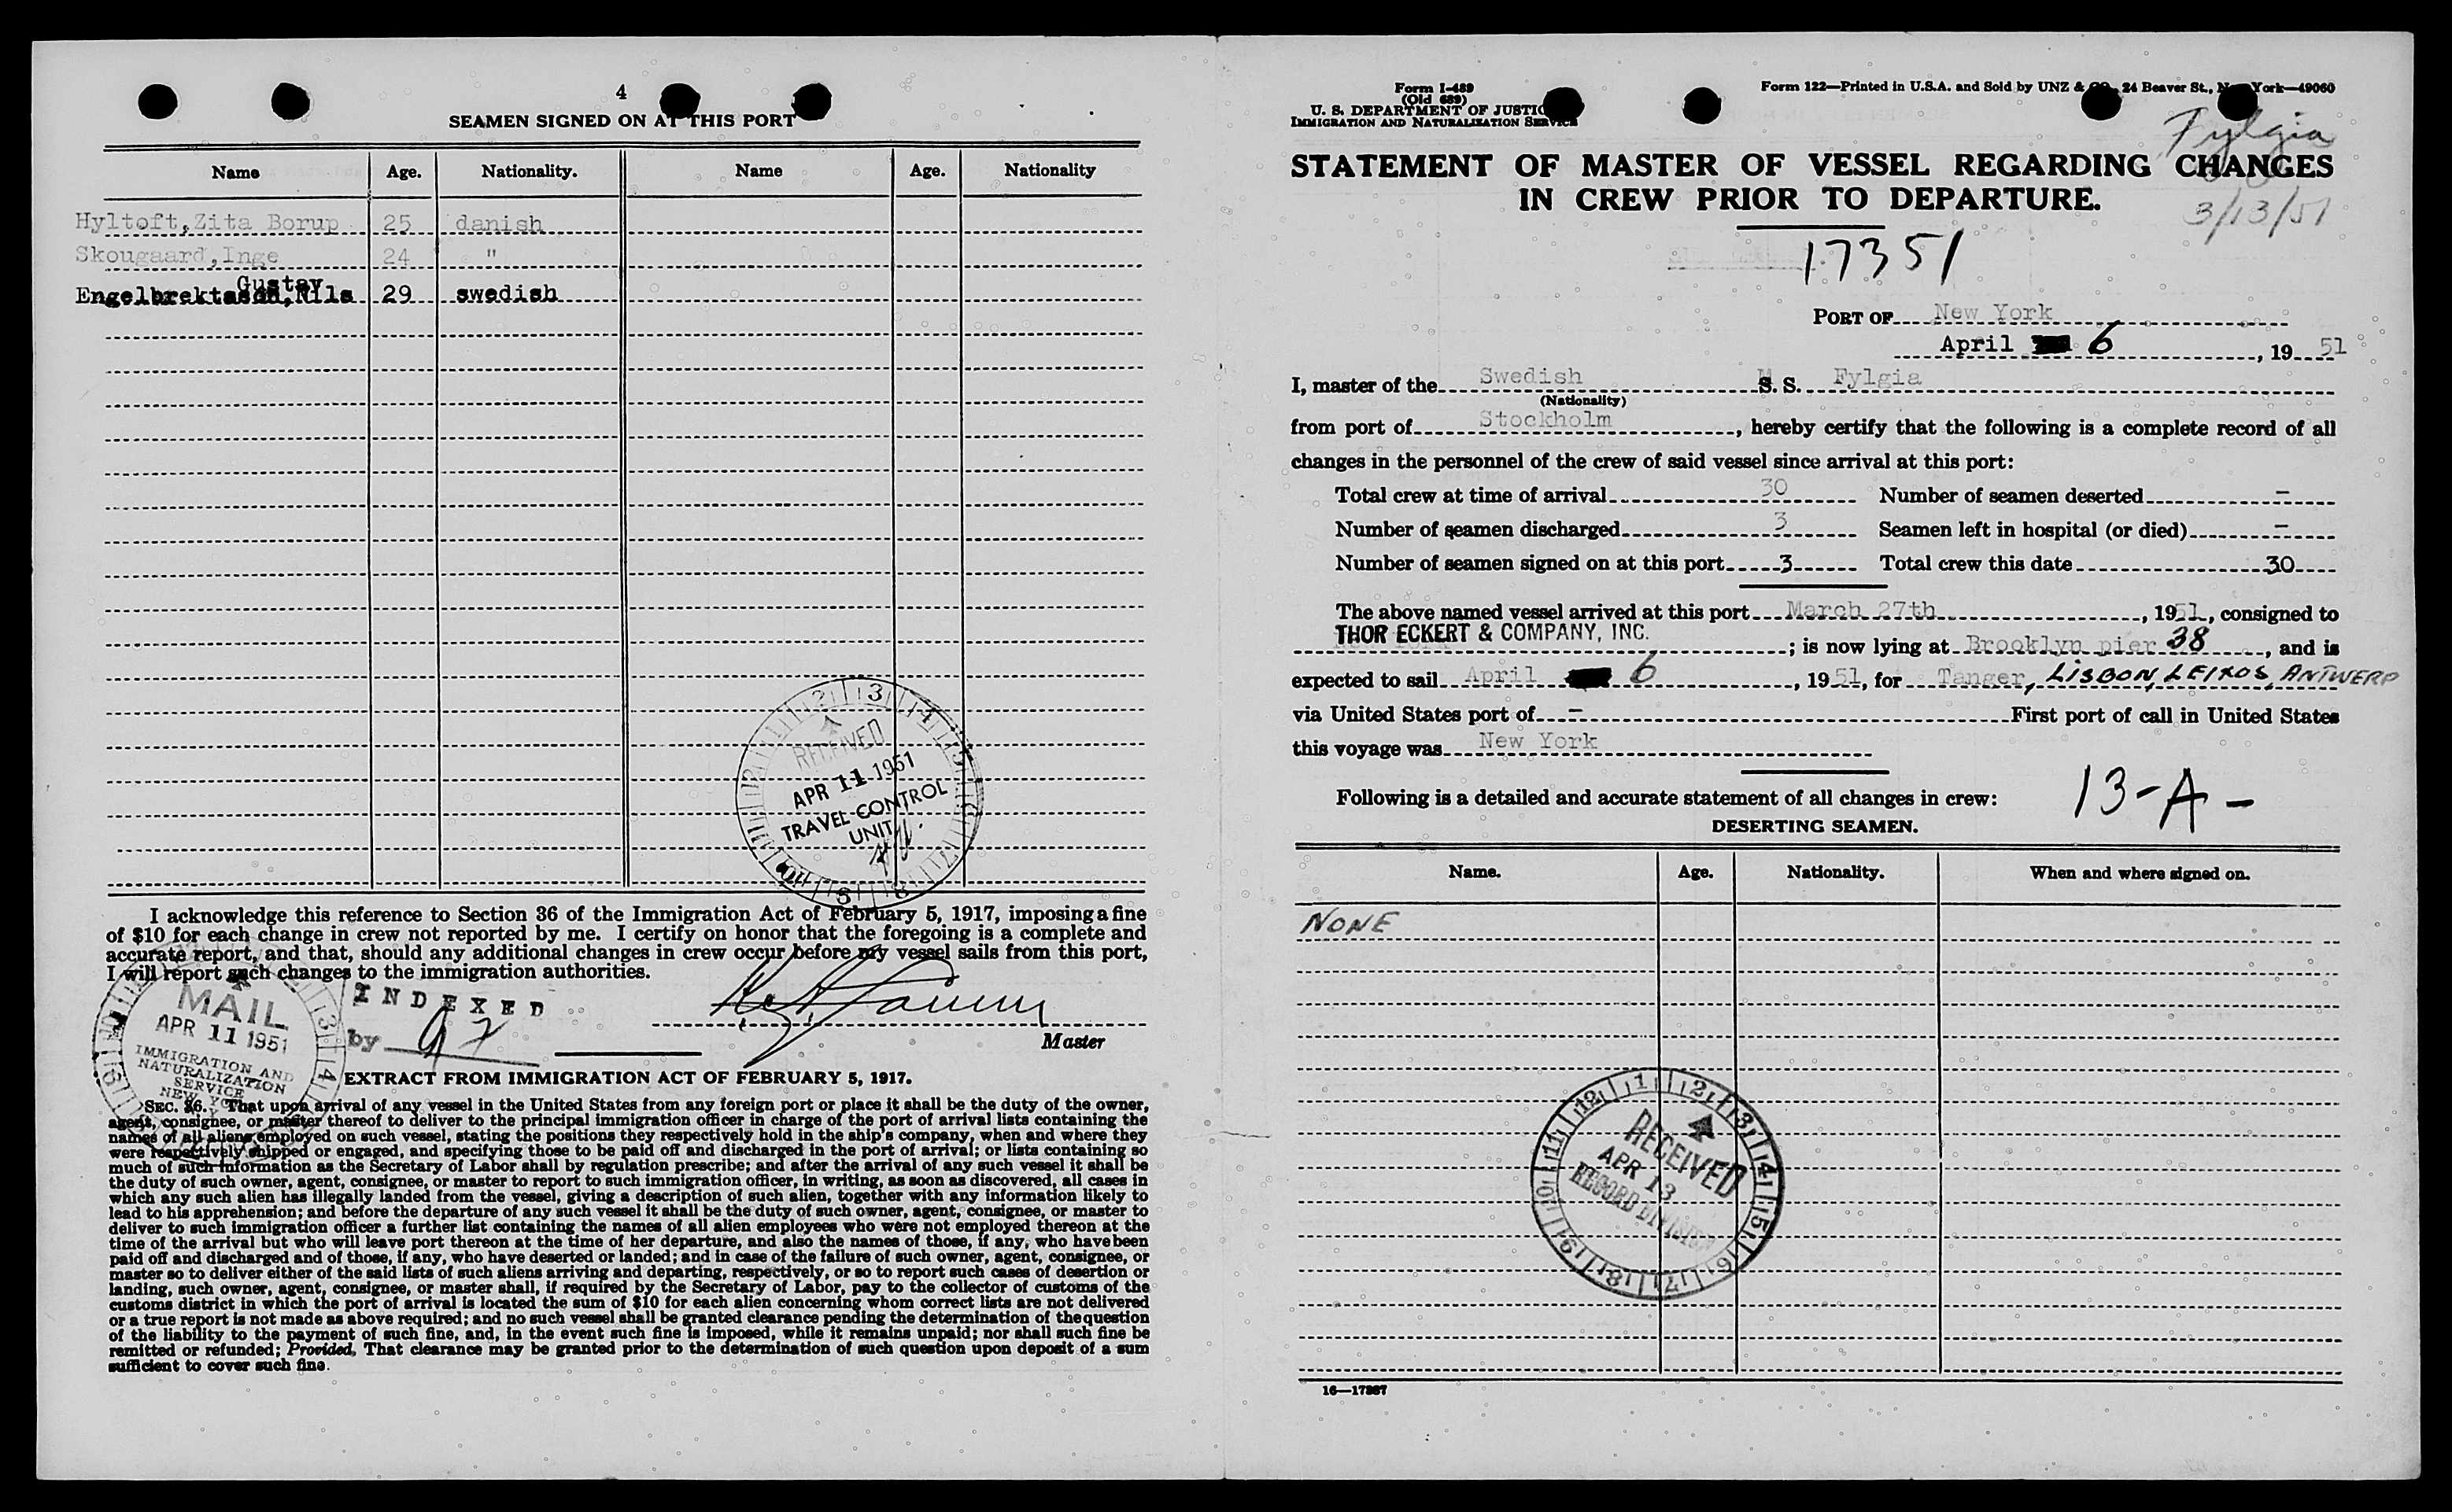 4
SEAMEN SIGNED ON AT THIS PORT
Name Age. Nationality. Name Age. Nationality
Hyltoft,Zita Borup 25 danish
Skougaard,Inge 24 "
Gustav
Engelbrektsson,Nils 29 swedish
RECEIVED
APR 11 1951
TRAVEL CONTROL
UNIT
I acknowledge this reference to Section 36 of the Immigration Act of February 5, 1917, imposing a fine
of $10 for each change in crew not reported by me. I certify on honor that the foregoing is a complete and
accurate report, and that, should any additional changes in crew occur before my vessel sails from this port,
I will report such changes to the immigration authorities.
MAIL
APR 11 1951
IMMIGRATION AND
NATURALIZATION
SERVICE
NEW YORK
INDEXED
by
Master
EXTRACT FROM IMMIGRATION ACT OF FEBRUARY 5, 1917.
SEC. 36. That upon arrival of any vessel in the United States from any foreign port or place it shall be the duty of the owner,
agent, consignee, or master thereof to deliver to the principal immigration officer in charge of the port of arrival lists containing the
names of all aliens employed on such vessel, stating the positions they respectively hold in the ship's company, when and where they
were respectively shipped or engaged, and specifying those to be paid off and discharged in the port of arrival; or lists containing so
much of such information as the Secretary of Labor shall by regulation prescribe; and after the arrival of any such vessel it shall be
the duty of such owner, agent, consignee, or master to report to such immigration officer, in writing, as soon as discovered, all cases in
which any such alien has illegally landed from the vessel, giving a description of such alien, together with any information likely to
lead to his apprehension; and before the departure of any such vessel it shall be the duty of such owner, agent, consignee, or master to
deliver to such immigration officer a further list containing the names of all alien employees who were not employed thereon at the
time of the arrival but who will leave port thereon at the time of her departure, and also the names of those, if any, who have been
paid off and discharged and of those, if any, who have deserted or landed; and in case of the failure of such owner, agent, consignee, or
master so to deliver either of the said lists of such aliens arriving and departing, respectively, or so to report such cases of desertion or
landing, such owner, agent, consignee, or master shall, if required by the Secretary of Labor, pay to the collector of customs of the
customs district in which the port of arrival is located the sum of $10 for each alien concerning whom correct lists are not delivered
or a true report is not made as above required; and no such vessel shall be granted clearance pending the determination of the question
of the liability to the payment of such fine, and, in the event such fine is imposed, while it remains unpaid; nor shall such fine be
remitted or refunded; Provided, That clearance may be granted prior to the determination of such question upon deposit of a sum
sufficient to cover such fine.
Form I-489
(Old 689)
U. S. DEPARTMENT OF JUSTICE
IMMIGRATION AND NATURALIZATION SERVICE
Form 122—Printed in U.S.A. and Sold by UNZ & CO., 24 Beaver St., New York—49060
Fylgia
STATEMENT OF MASTER OF VESSEL REGARDING CHANGES
IN CREW PRIOR TO DEPARTURE.
3/13/51
17351
PORT OF New York
April 6, 19 51
I, master of the Swedish M S. S. Fylgia
(Nationality)
from port of Stockholm, hereby certify that the following is a complete record of all
changes in the personnel of the crew of said vessel since arrival at this port:
Total crew at time of arrival 30 Number of seamen deserted –
Number of seamen discharged 3 Seamen left in hospital (or died) –
Number of seamen signed on at this port 3 Total crew this date 30
The above named vessel arrived at this port March 27th, 1951, consigned to
THOR ECKERT & COMPANY, INC.; is now lying at Brooklyn pier 38, and is
expected to sail April 6, 1951, for Tanger, LISBON, LEIXOS, ANTWERP
via United States port of – First port of call in United States
this voyage was New York
Following is a detailed and accurate statement of all changes in crew:
13-A-
DESERTING SEAMEN.
Name. Age. Nationality. When and where signed on.
NONE
RECEIVED
APR 13
RECORD DIVISION
16—17267